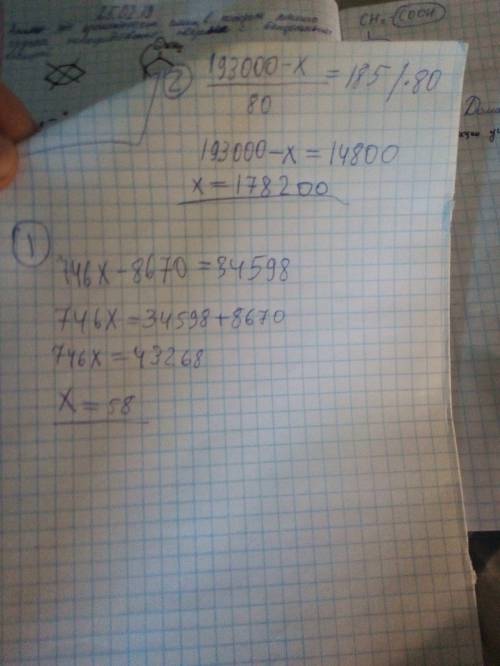 25.02.19
CH₃ - COOH
② (193000 - x) / 80 = 185 / · 80
193000 - x = 14800
x = 178200
①
746x - 8670 = 34598
746x = 34598 + 8670
746x = 43268
x = 58